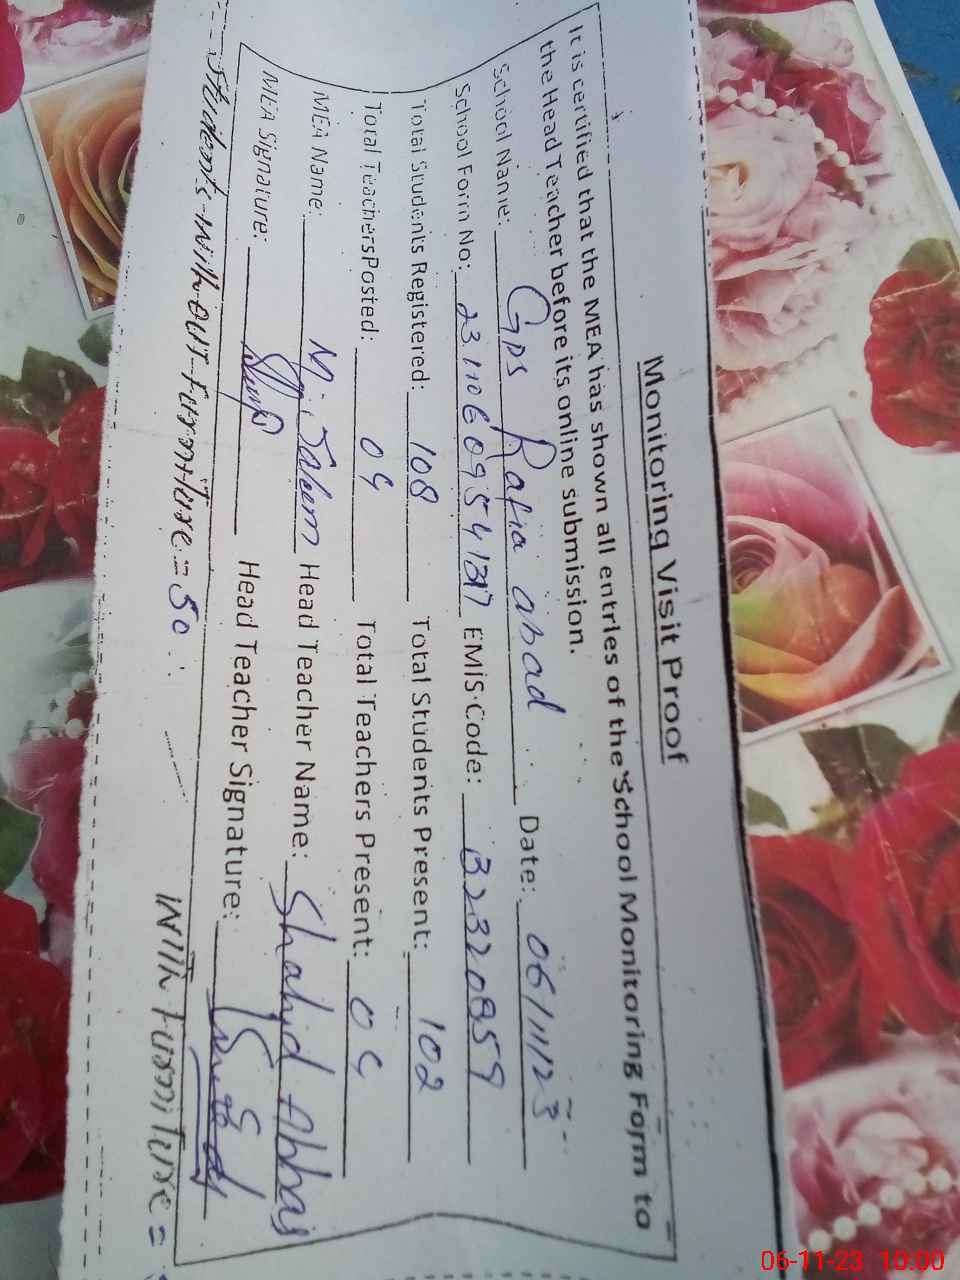 Monitoring Visit Proof
It is certified that the MEA has shown all entries of the School Monitoring Form to
the Head Teacher before its online submission.
School Name: GPS Rafia abad Date: 06/11/23
School Form No: EMIS Code: 33230859
Total Students Registered: 108 Total Students Present: 102
Total Teachers Posted: 04 Total Teachers Present: 04
MEA Name: M. Saleem Head Teacher Name: Shahid Abbas
MEA Signature: Head Teacher Signature:
Students without furniture = 50 With furniture =
06-11-23 10:00